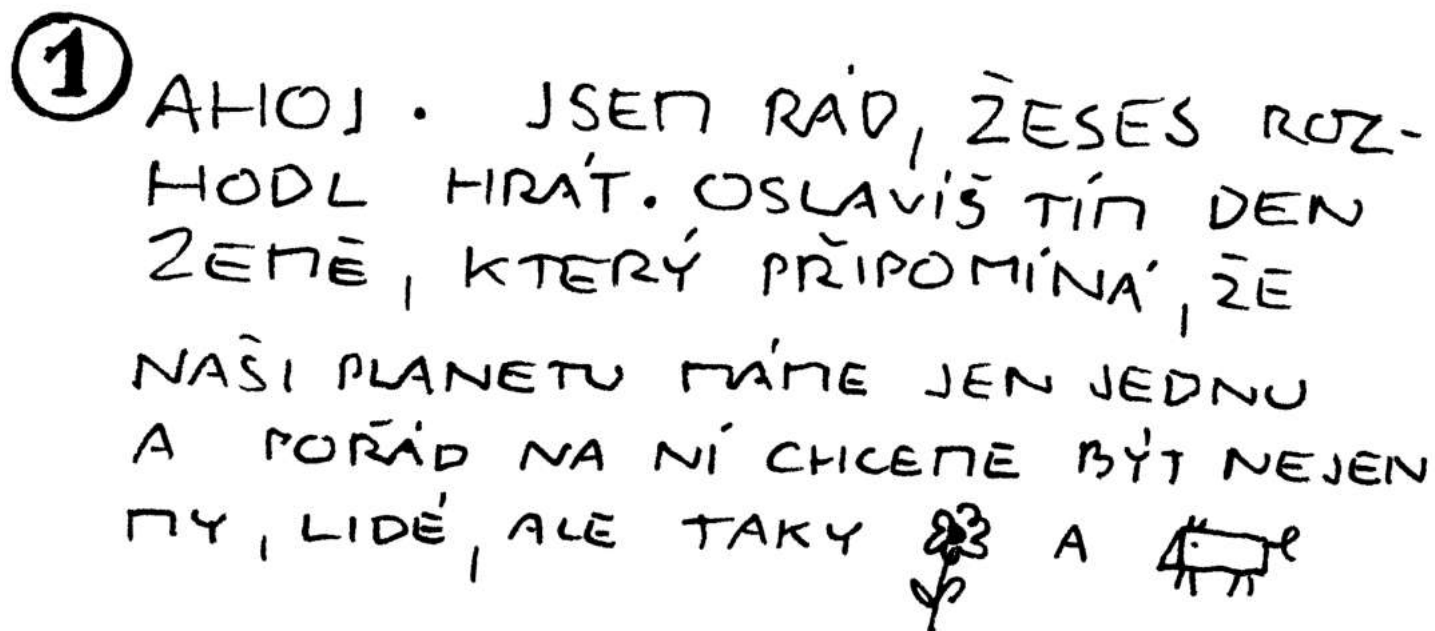 1 AHOJ. JSEM RÁD, ŽESES ROZ-
HODL HRÁT. OSLAVÍŠ TÍM DEN
ZEMĚ, KTERÝ PŘIPOMÍNÁ, ŽE
NAŠI PLANETU MÁME JEN JEDNU
A POŘÁD NA NÍ CHCEME BÝT NEJEN
MY, LIDÉ, ALE TAKY A